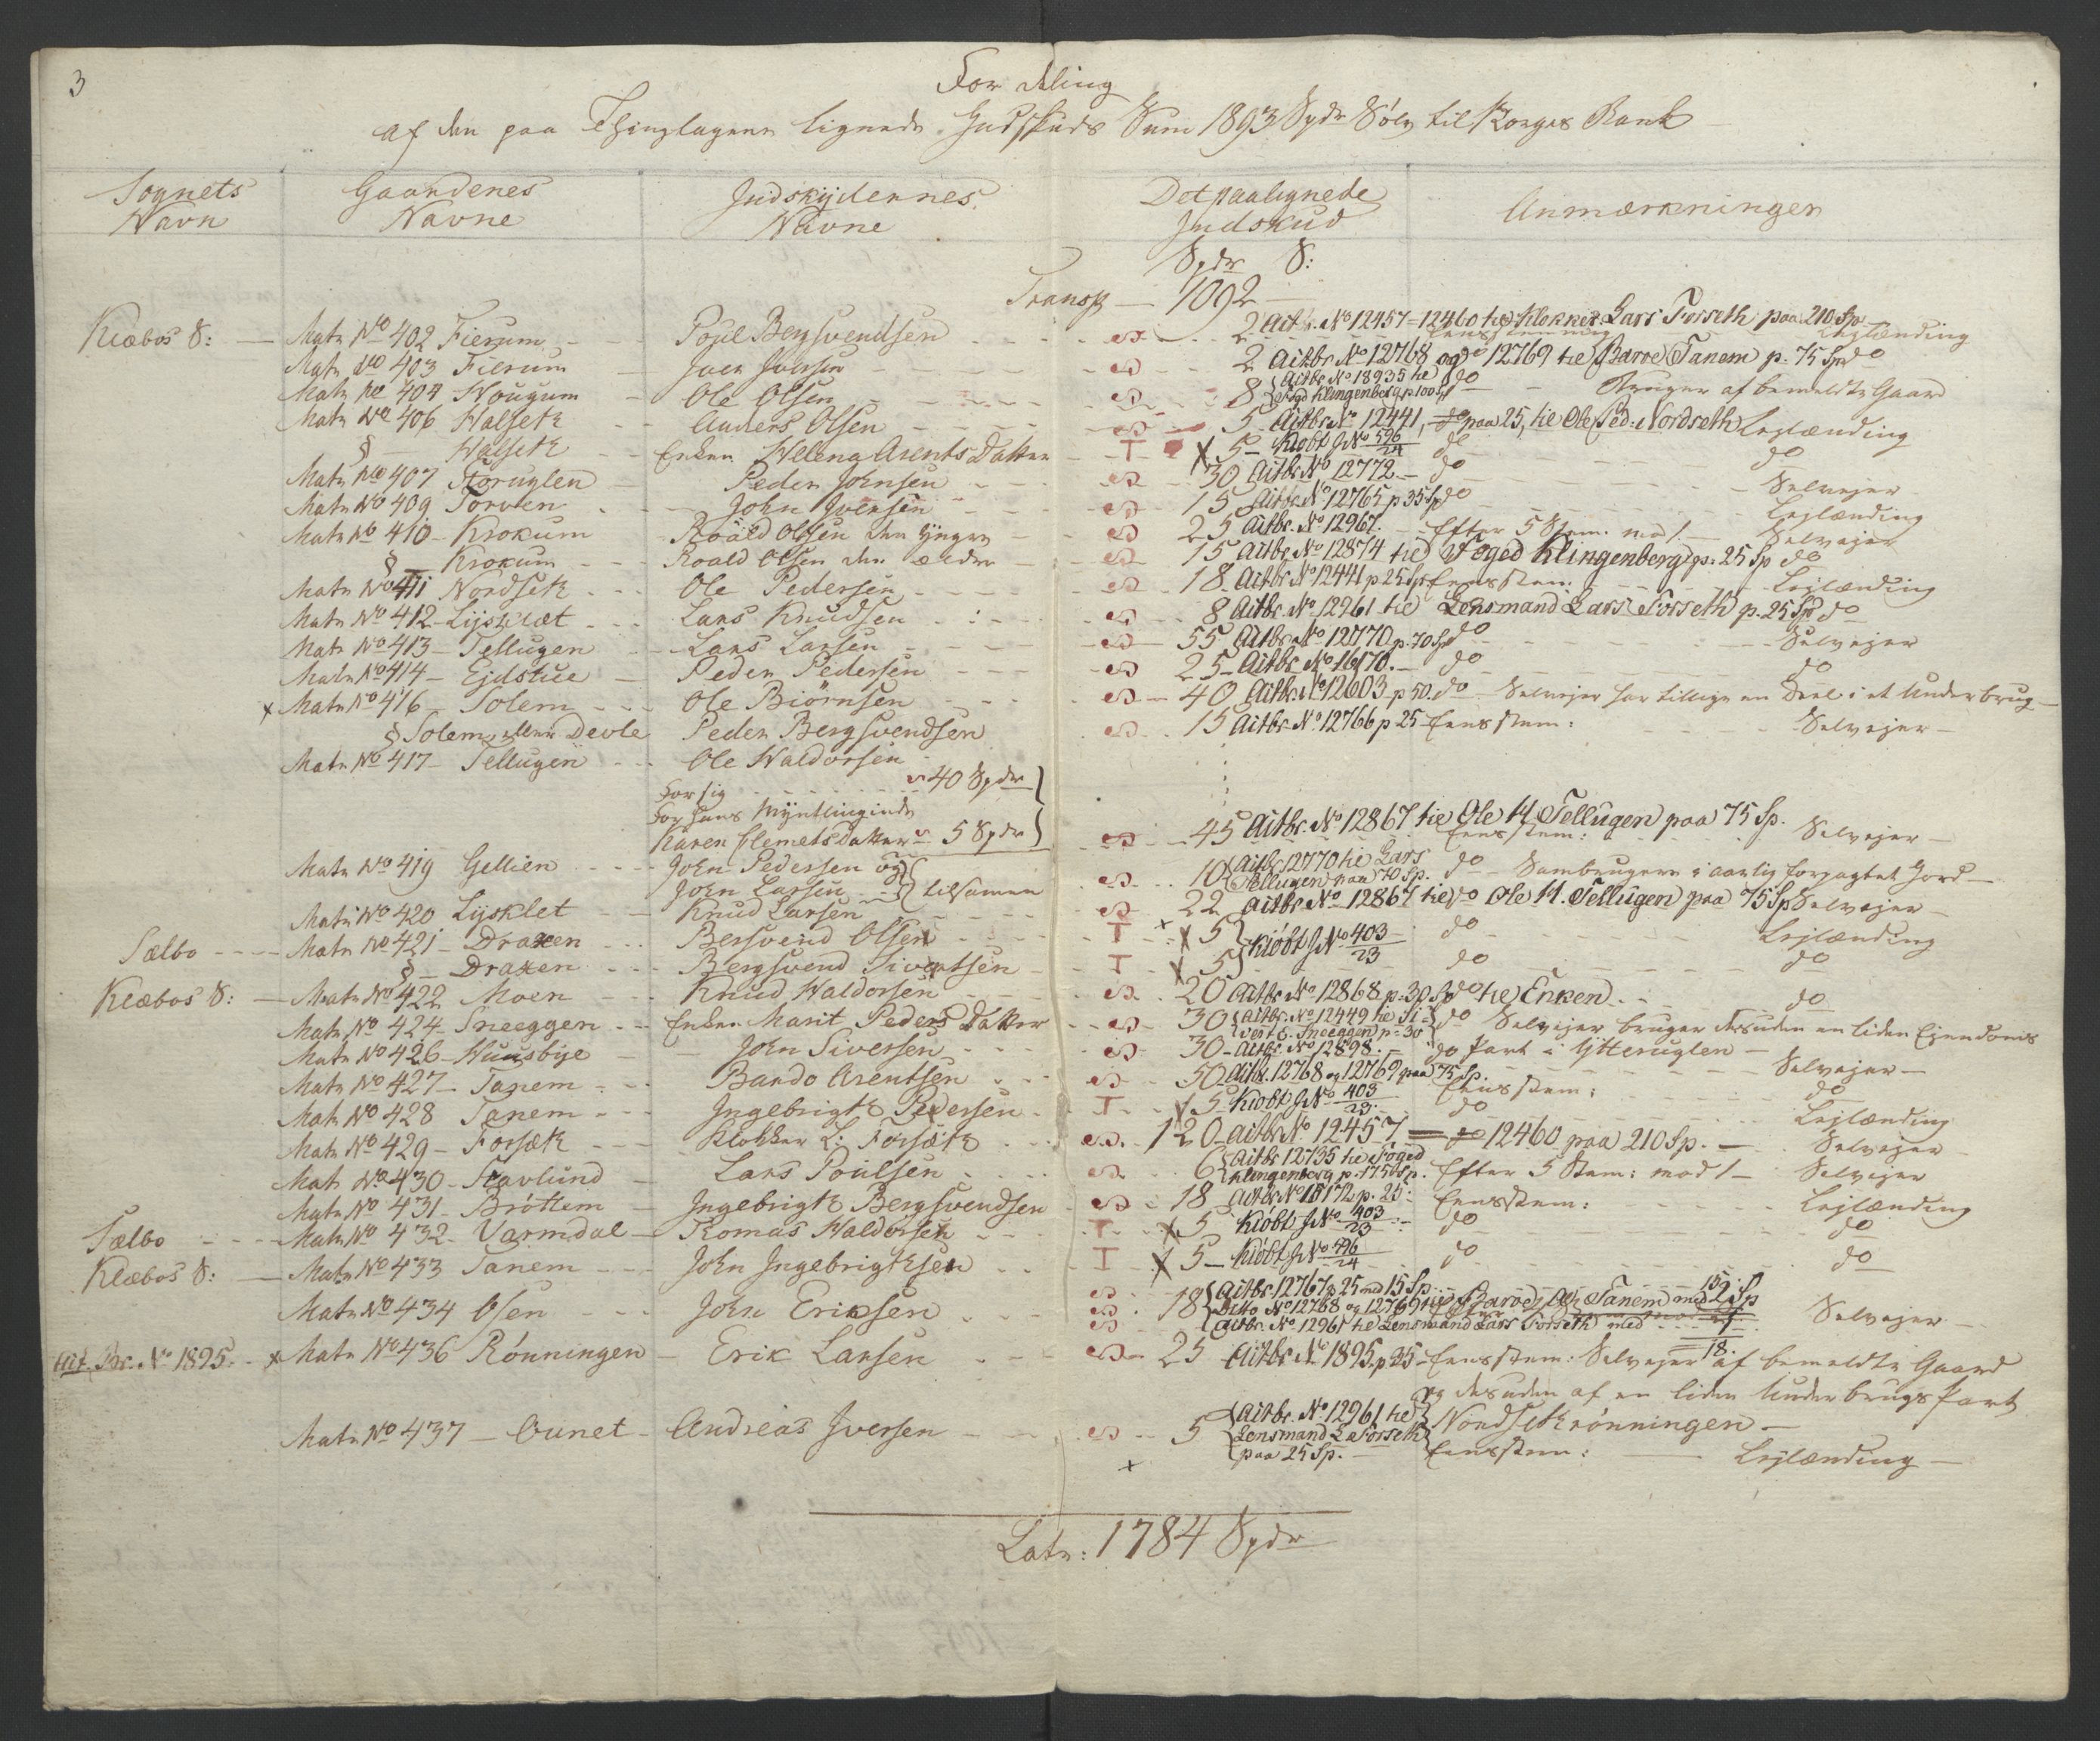 3
For deling
af den paa Thinglagene lignede Indskuds Sum 1893 Spdr Sølv til Norges Bank
Sognets Navn Gaardenes Navne Indskydernes Navne Det paalignede Indskud Anmærkninger
Spdr S:
Transp — 1092 —
Klæboe S: — Matr No 402 Fierum Poul Bergsvendsen 2 Actbr. No 12457 = 12460 tie Klokker Lars Forseth paa 210 Sp Eensstemmig Lejlænding
Matr No 403 Fierum Iver Iversen 2 Actbr No 12768 og do 12769 tie Baroe Tanem p. 75 Sp do
Matr No 404 Hougum Ole Olsen 8 Actbr No 18935 tie Foged Klingenberg p 100 Sp do Bruger af bemeldte Gaard
Matr No 406 Halseth Anders Olsen 5 Actbr No 12441, paa 25, tie Ole Ped: Nordseth Lejlænding
§ — Halseth Enken Helena Arents Datter T X 5 — Kiøbt J No 596/24 do do
Matr No 407 Storuglen Peder Johnsen 30 Actbr No 12772 — do Selvejer
Matr No 409 Torven John Iversen 15 Actbr. No 12765 p 35 Sp do Lejlænding
Matr No 410 — Krokum Roald Olsen den Yngre 25 Actbr. No 12967. — Efter 5 Stem: mod 1. — Selvejer
§ — Krokum Roald Olsen den ældre 15 Actbr No 12874 tie Foged Klingenberg p: 25 Sp do
Matr No 411 Nordseth Ole Pedersen 18 Actbr No 12441 p 25 Sp Eensstem: Lejlænding
Matr No 412 — Lysklæt Lars Knudsen 8 Actbr No 12961 tie Lensmand Lars Forseth p. 25 Sp do
Matr No 413 — Tellugen Lars Larsen 55 Actbr No 12770 p. 70 Sp do Selvejer
Matr No 414 — Ejdstue Peder Pedersen 25 — Actbr No 16170. — do do
x Matr No 416 — Solem Ole Biörnsen 40 Actbr No 12603 p 50. do Selvejer har tillige en Deel i et Underbrug —
§ Solem eller Devle Peder Bergsvendsen 15 Actbr No 12766 p 25 — Eensstem: Selvejer —
Matr No 417 — Tellugen Ole Haldorsen
For sig 40 Spdr
For hans Myntlinginde
Karen Clemetsdatter 5 Spdr 45 Actbr. No 12867 tie Ole H. Tellugen paa 75 Sp. Eensstem: Selvejer —
Matr No 419 Gellien John Pedersen og John Larsen tilsamen 10 Actbr 12770 tie Lars Tellugen paa 70 Sp. do — Sambrugere i aarlig forpagtet Jord —
Matr No 420 Lysklet Knud Larsen 22 Actbr No 12867 tie do Ole H. Tellugen paa 75 Sp Selvejer —
Sælbo Matr No 421 — Draxen Bersvend Olsen T X 5 Kiøbt J No 403/23 do Lejlænding
§ — Draxen Bergsvend Sivertsen T X 5 do do
Klæboe S: — Matr No 422 Moen Knud Haldorsen 20 Actbr No 12868 p. 30 Sp do tie Enken do
Matr No 424 — Sneeggen Enken Marit Peders Datter 30 Actbr. No 12449 tie Sivert E. Sneeggen p: 30 do Selvejer bruger desuden en liden Ejendoms
Matr No 426 — Huusbye John Siversen 30 — Actbr No 12898. — do Part i Ytteruglen —
Matr No 427 — Tanem Bardo Arentsen 50 Actbr. 12768 og 12769 paa 75 Sp. Eensstem: Selvejer —
Matr No 428 Tanem Ingebrigt Pedersen T X 5 — Kiøbt J No 403/23 do do Lejlænding
Matr No 429 — Forsæth Klokker L: Forsæth 120 — Actbr No 12457 = do 12460 paa 210 Sp. — Selvejer
Matr No 430 — Stavlund Lars Poulsen 6 Actbr 12735 tie Foged Klingenberg p. 175 Sp. Efter 5 Stem: mod 1 — Selvejer
Matr No 431 — Bröttem Ingebrigt Bergsvendsen 18 Actbr No 15172 p. 25: Eensstem: Lejlænding
Sælbo Matr No 432 — Varmdal Tomas Haldorsen T X 5 Kiøbt J No 403/23 do do
Klæboe S: — Matr No 433 Tanem John Ingebrigtsen T X 5 — Kiøbt J No 496/24 do do
Matr No 434 Osen John Eriksen 18 Actbr 12767 p 25 med 15 Sp: 15.
Ditto No 12768 og 12769 tie Baroe A. Tanem med 2 Sp
Actbr. No 12961 tie Lensmand Lars Forseth med 1 Selvejer —
18.
Act. Br. No 1895. x Matr No 436 Rönningen Erik Larsen 25 Actbr No 1895. p 25 — Eensstem: Selvejer af bemeldte Gaard
og desuden af en liden Underbrugs Part
Nordsethrönningen —
Matr No 437 — Ounet Andreas Iversen 5 Actbr. No 12961 tie Lensmand L Forseth paa 25 Sp. — Eensstem: Lejlænding —
x
Latr: 1784 Spdr